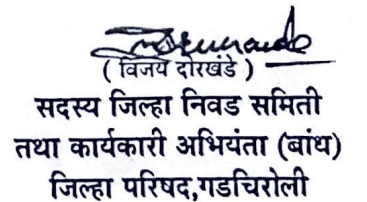 ( विजय दोरखंडे )
सदस्य जिल्हा निवड समिती
तथा कार्यकारी अभियंता (बांध)
जिल्हा परिषद,गडचिरोली